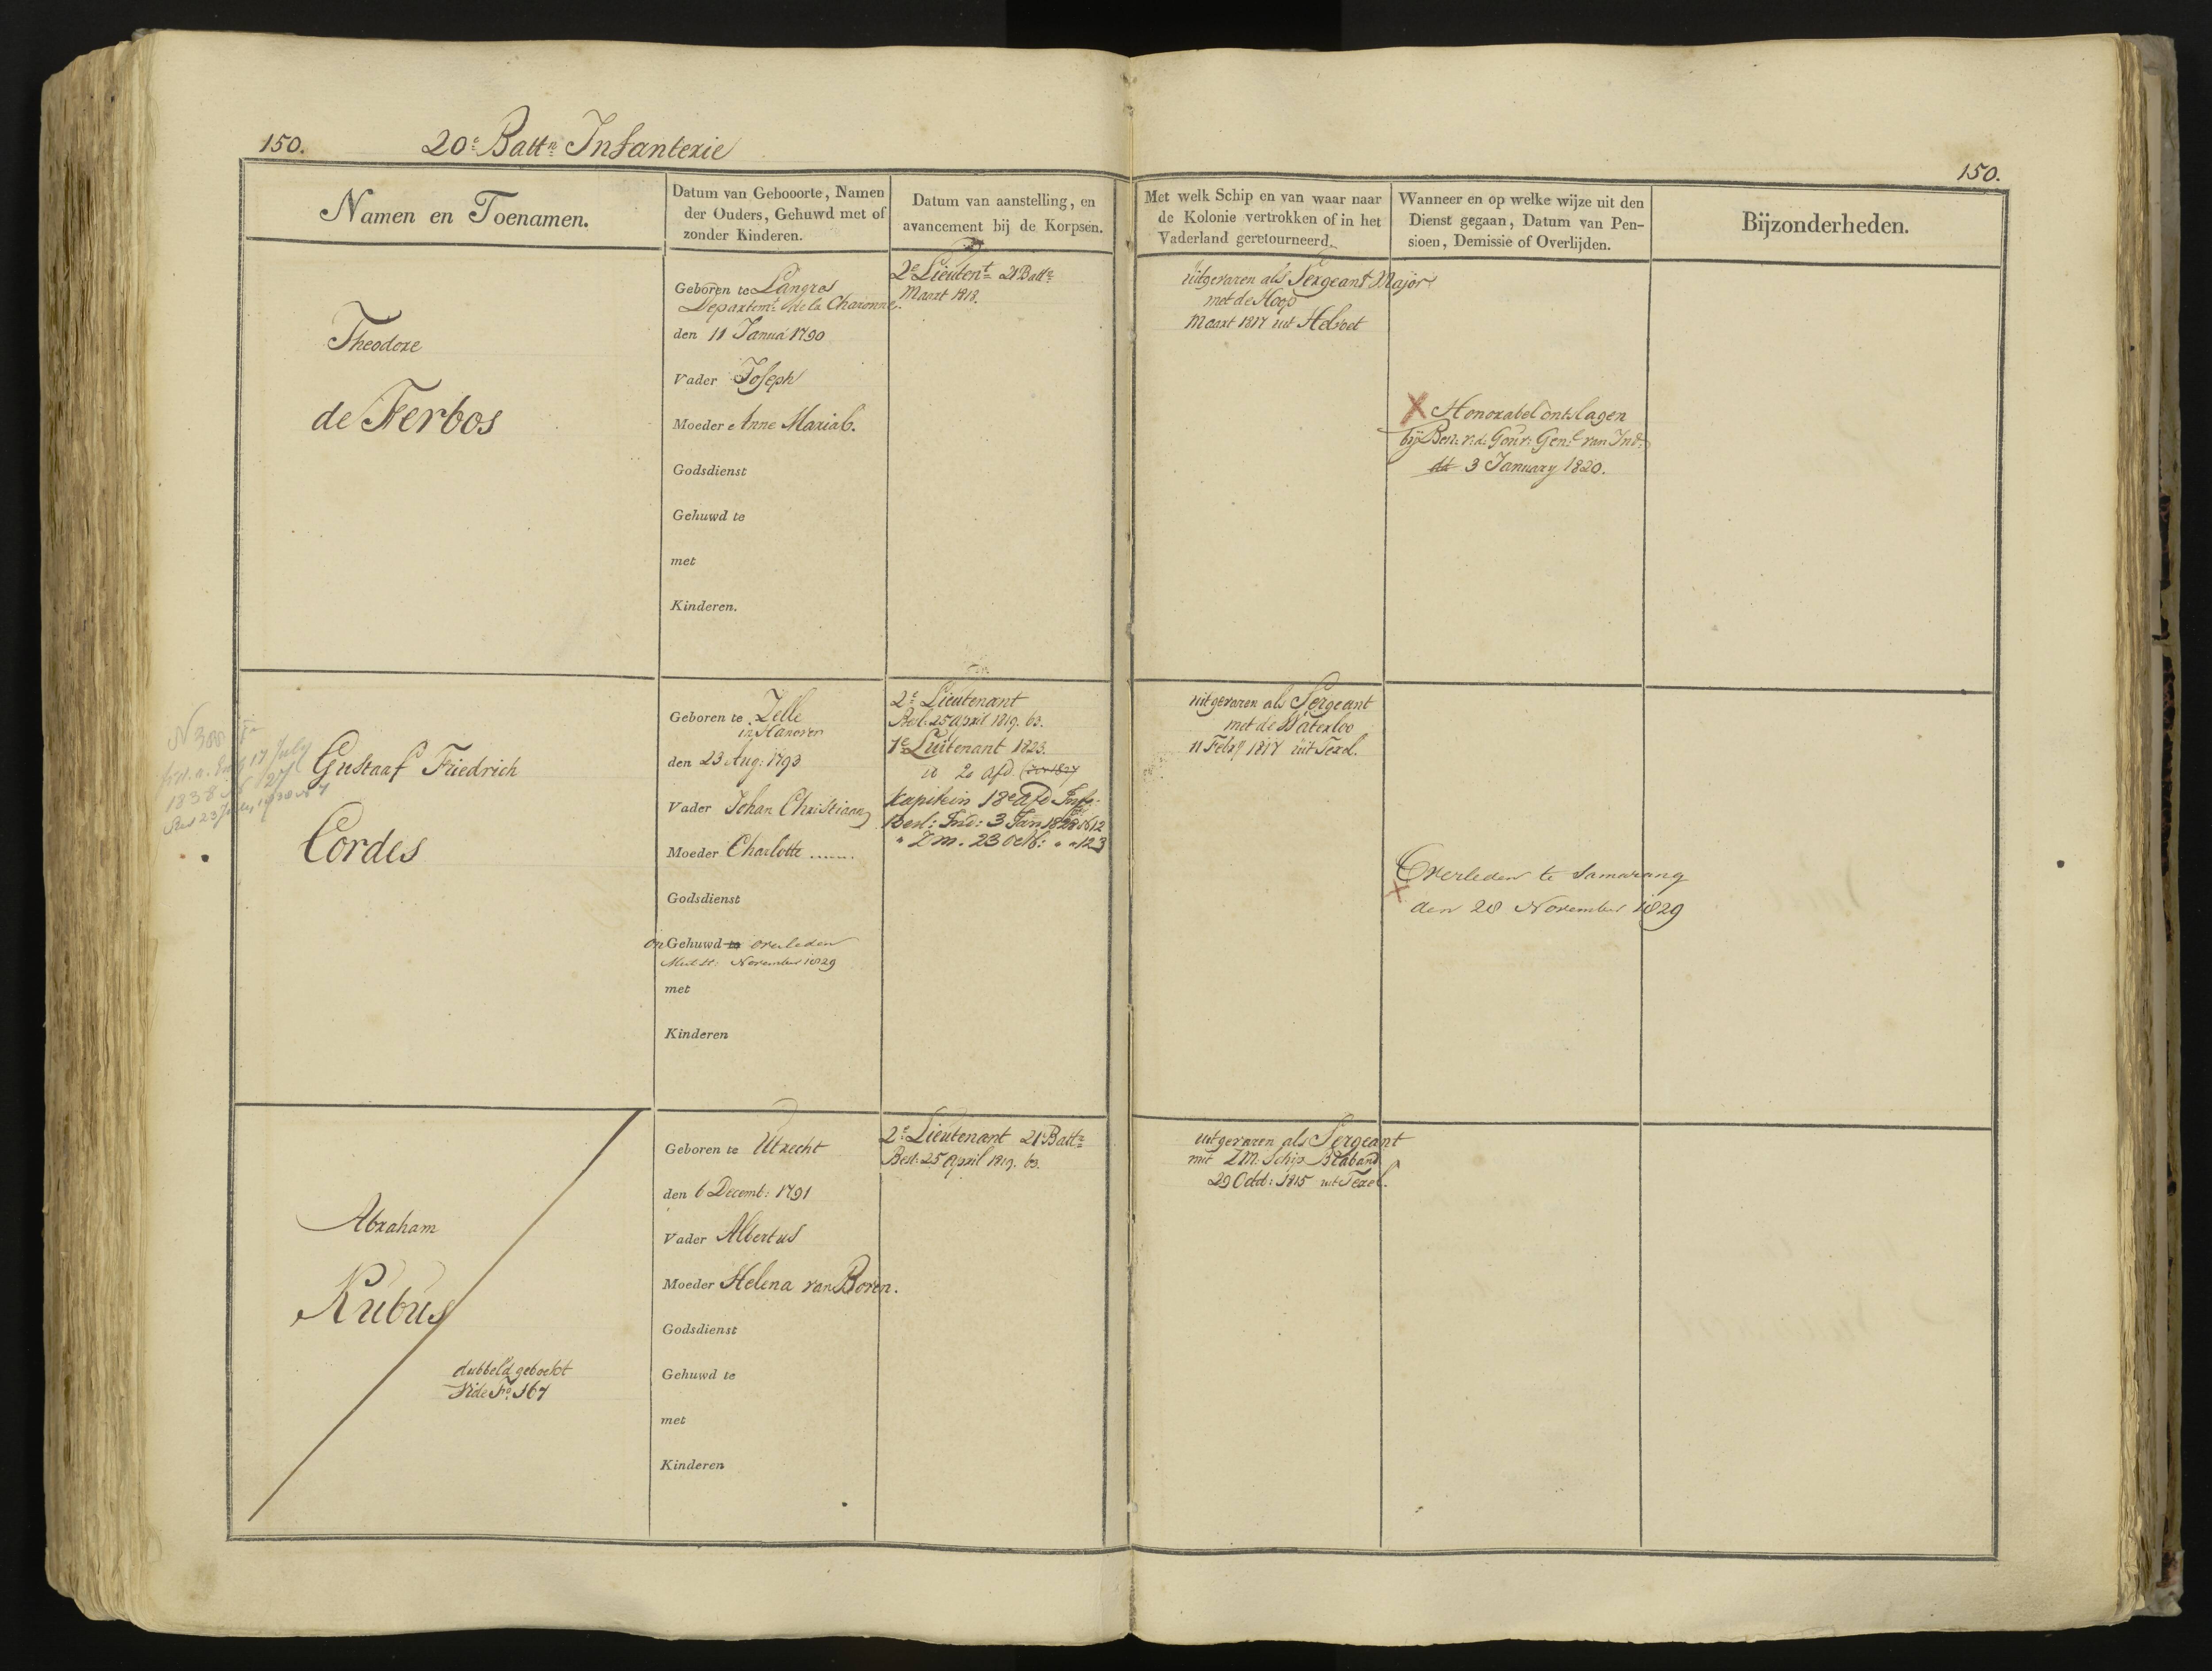 150.
20e Battn Infanterie
150.
Namen en Toenamen.
Datum van Gebooorte, Namen
der Ouders, Gehuwd met of
zonder Kinderen.
Datum van aanstelling, en
avancement bij de Korpsen.
Met welk Schip en van waar naar
de Kolonie vertrokken of in het
Vaderland geretourneerd.
Wanneer en op welke wijze uit den
Dienst gegaan, Datum van Pen-
sioen, Demissie of Overlijden.
Bijzonderheden.
Theodore
de Ferbos
Geboren te Langres
Departemt de la Charonne.
den 11 Januá 1790
Vader Joseph
Moeder Anne Maria C.
Godsdienst
Gehuwd te
met
Kinderen.
2e Lieutent 21 Battn
Maart 1818.
uitgevaren als Sergeant Major
met de Hoop
Maart 1817 uit Helvoet
X Honorabel ontslagen
bij Besl: v: d: Gouv: Genl van Ind:
3 January 1820.
Gustaaf Friedrich
Cordes
17 July
1838
Geboren te Zelle
in Hanover
den 23 Aug: 1793
Vader Johan Christiaan
Moeder Charlotte .......
Godsdienst
on Gehuwd te overleden
November 1829
met
Kinderen
2e Lieutenant
Besl. 25 april 1819. 63.
1e Luitenant 1823.
20 afd.
Kapitein 18e Afd Inf
Besl: Ind: 3 Jan 1828 No 12
" Z m. 23 Octb: " " 123
uitgevaren als Sergeant
met de Waterloo
11 Febry 1817 uit Texel.
Overleden te Samarang
X
den 28 November 1829
Abraham
Kubus
dubbeld geboekt
Vide Fo. 167
Geboren te Utrecht
den 6 Decemb: 1791
Vader Albertus
Moeder Helena van Boren.
Godsdienst
Gehuwd te
met
Kinderen
2e Lieutenant 21e Battn
Besl. 25 april 1819. 63.
uitgevaren als Sergeant
met ZM. Schip Braband
29 Octb: 1815 uit Texel.